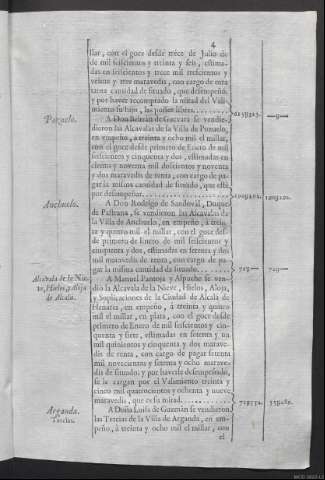 4
llar, con el goce desde trece de Julio de
de mil seiscientos y treinta y seis, estima-
das en seiscientos y trece mil trescientos y
veinte y tres maravedis, con cargo de otra
tanta cantidad de situado, que desempeñó,
y por haver recomprado la mitad del Vali-
miento su hijo, las possee libres.
Pozuelo.
A Don Beltràn de Guevara se vendie-
dieron las Alcavalas de la Villa de Pozuelo,
en empeño, à treinta y ocho mil el millar,
con el goce desde primero de Enero de mil
seiscientos y cinquenta y dos, estimadas en
ciento y noventa mil doscientos y noventa
y dos maravedis de renta, con cargo de pa-
gar la misma cantidad de situado, que està
por desempeñar.
Anchuelo.
A Don Rodrigo de Sandoval, Duque
de Pastrana, se vendieron las Alcavalas de
la Villa de Anchuelo, en empeño, à trein-
ta y quatro mil el millar, con el goce des-
de primero de Enero de mil seiscientos y
cinquenta y dos, estimadas en setenta y dos
mil maravedis de renta, con cargo de pa-
gar la misma cantidad de situado.
Alcavala de la Nie-
ve, Hielos, y Aloja
de Alcalà.
A Manuel Pantoja y Alpuche se ven-
diò la Alcavala de la Nieve, Hielos, Aloja,
y Suplicaciones de la Ciudad de Alcalà de
Henares, en empeño, à treinta y quatro
mil el millar, en plata, con el goce desde
primero de Enero de mil seiscientos y cin-
quenta y siete, estimadas en setenta y un
mil quinientos y cinquenta y dos marave-
dis de renta, con cargo de pagar setenta
mil novecientos y setenta y ocho marave-
dis de situado; y por haverse desempeñado,
se le cargan por el Valimiento treinta y
cinco mil quatrocientos y ochenta y nueve
maravedis, que es su mitad.
Arganda.
Tercias.
A Doña Luisa de Guzmàn se vendieron
las Tercias de la Villa de Arganda, en em-
peño, à treinta y ocho mil el millar, con
el